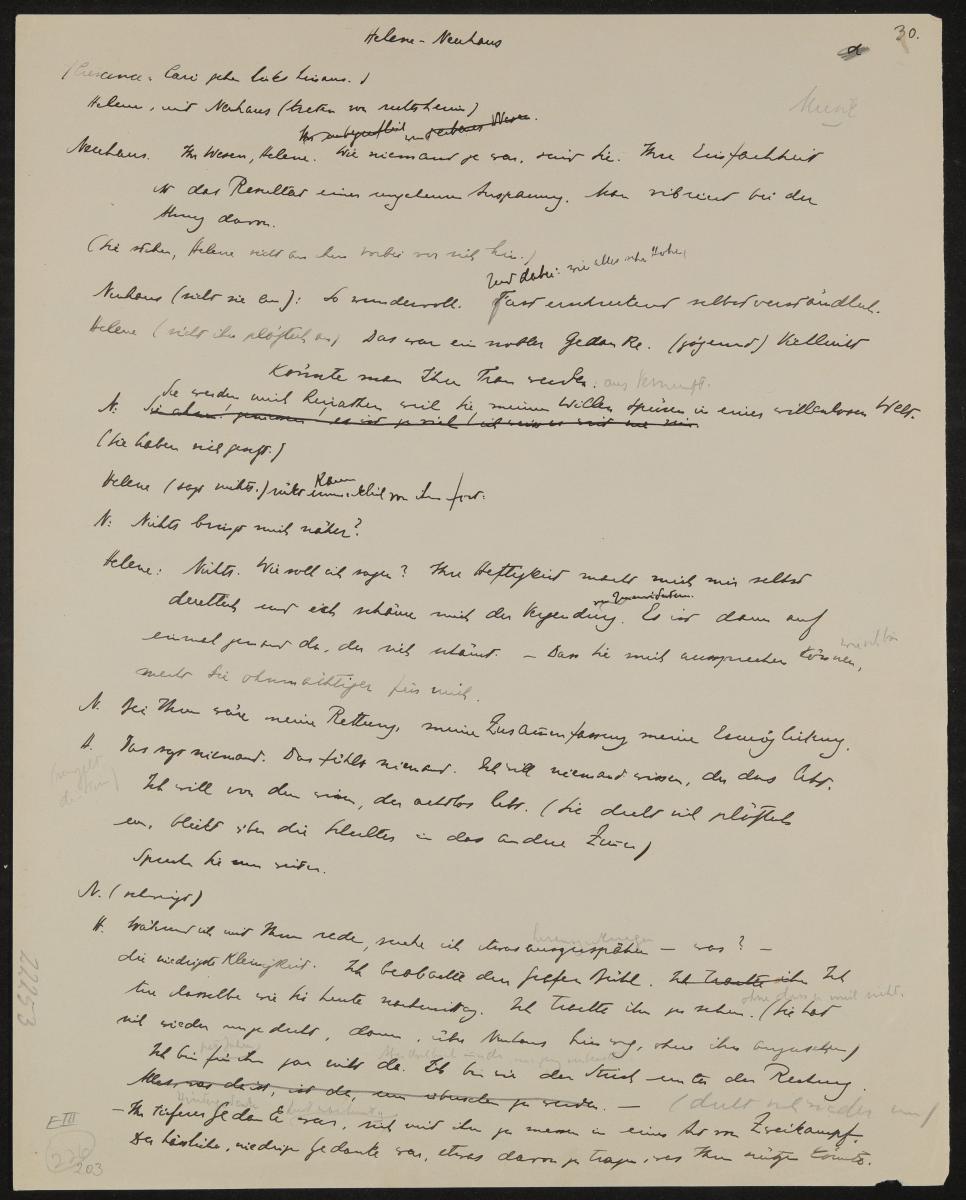 Helene - Neuhaus
30.
α
(Crescence, Cari gehen links hinaus.)
Musik
Helene, und Neuhaus (treten von rechts herein)
Ihr unbegreiflich und
Neuhaus. Ihr Wesen, Helene. Wie niemand je war, sind Sie. Ihre Einfachheit
ist das Resultat einer ungeheuren Anspannung. Man vibriert bei der
Ahnung davon.
(Sie stehen, Helene sieht an ihm vorbei vor sich hin.)
Und dabei: wie alles sehr Hohe,
Neuhaus (sieht sie an): So wundervoll. Fast erschreckend selbstverständlich.
Helene (sieht ihn plötzlich an) Das war ein nobler Gedanke. (zögernd) Vielleicht
könnte man Ihre Frau werden. aus Vernunft.
Sie werden mich heirathen weil Sie meinen Willen spüren in einer willenlosen Welt.
N:
(Sie haben sich gesetzt.)
Kaum
Helene (sagt nichts.) rückt unmerklich von ihm fort:
N: Nichts bringt mich näher?
Helene: Nichts. Wie soll ich sagen? Ihre Heftigkeit macht mich mir selbst
deutlich und ich schäme mich der Vergeudung. Es ist dann auf
einmal jemand da, der sich schämt. – Dass Sie mich aussprechen können,
macht Sie ohnmächtiger für mich.
N. Bei Ihnen wäre meine Rettung, meine Zusammenfassung meine Ermöglichung.
H. Das sagt niemand. Das fühlt niemand. Ich will niemand wissen, der das lebt.
Ich will von dem wissen, der achtlos lebt. (Sie dreht sich plötzlich
um, blickt über die Schulter in das andere Zimmer)
Sprechen Sie nun weiter.
N. (schweigt)
H. Während ich mit Ihnen rede, suche ich etwas auszuspähen – was? –
die niedrigste Kleinigkeit. Ich beobachte den Grafen Bühl. Ich trachte ihn Ich
ohne dass er mich sieht.
tue dasselbe wie Sie heute nachmittag. Ich trachte ihn zu sehen. (Sie hat
sich wieder umgedreht, dann, über Neuhaus hinweg, ohne ihn anzusehen)
Ich bin für ihn gar nicht da. Ich bin wie der Strich unter der Rechnung.
Alles was da ist, ist da, um zu werden. – (dreht sich wieder um)
– Ihr tieferer Gedanke war, sich mit ihm zu messen in einer Art von Zweikampf.
Der hässliche, niedrige Gedanke war, etwas davon zu tragen, was Ihnen nützen könnte.
E III
203
22253